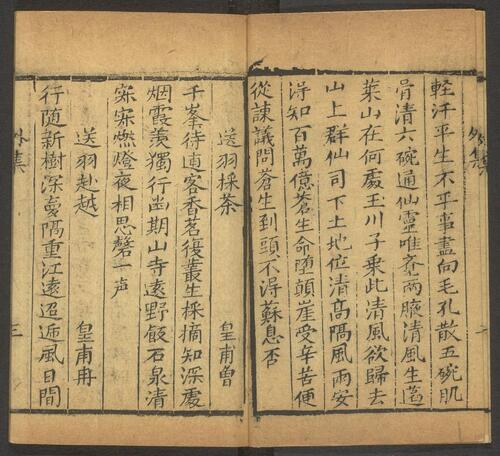 軽汗平生不平事盡向毛孔散五碗肌
骨清六碗通仙靈唯覺兩腋清風生蓬
萊山在何處玉川子乗此清風欲歸去
山上群仙司下土地位清高隔風雨安
得知百萬億蒼生命堕顛崖受辛苦便
從諫議問蒼生到頭不得蘇息否
送羽採茶　皇甫曽
千峯待逋客香茗復叢生採摘知深處
烟霞羨獨行幽期山寺遠野飯石泉清
寂寂燃燈夜相思磬一声
送羽赴越　皇甫冉
行随新樹深夢隔重江遠迢逓風日間
外集
外集
三